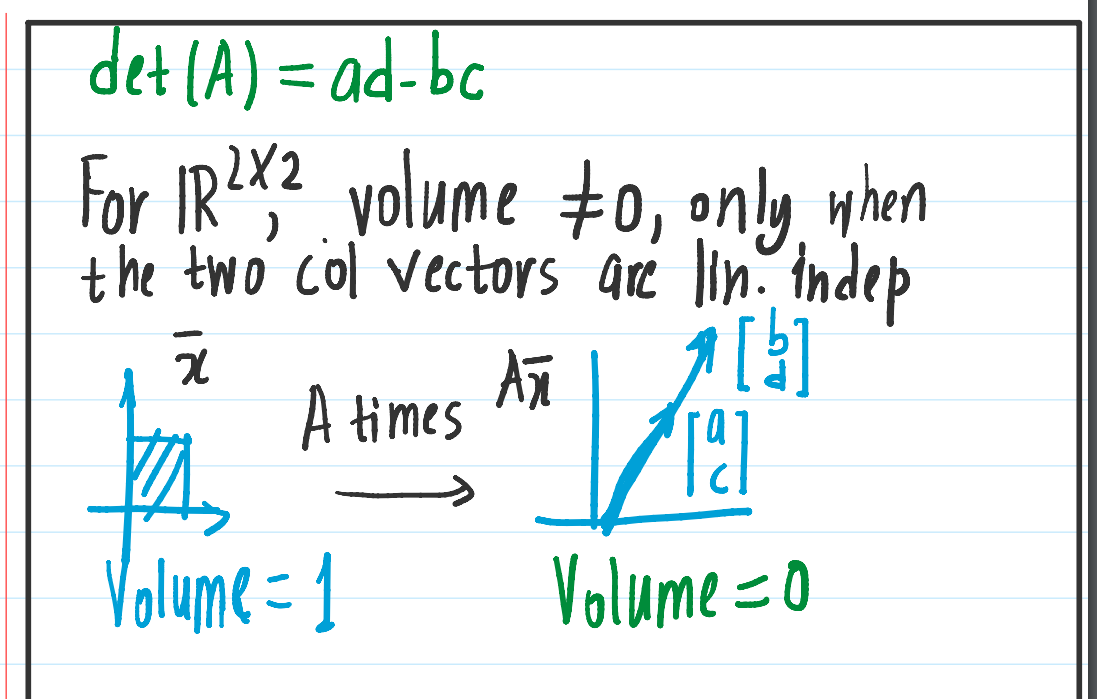 det(A) = ad-bc
For ℝ^{2×2}, volume ≠0, only when
the two col vectors are lin. indep
x̄
A times
Ax̄
[b d]
[a c]
Volume = 1
Volume = 0